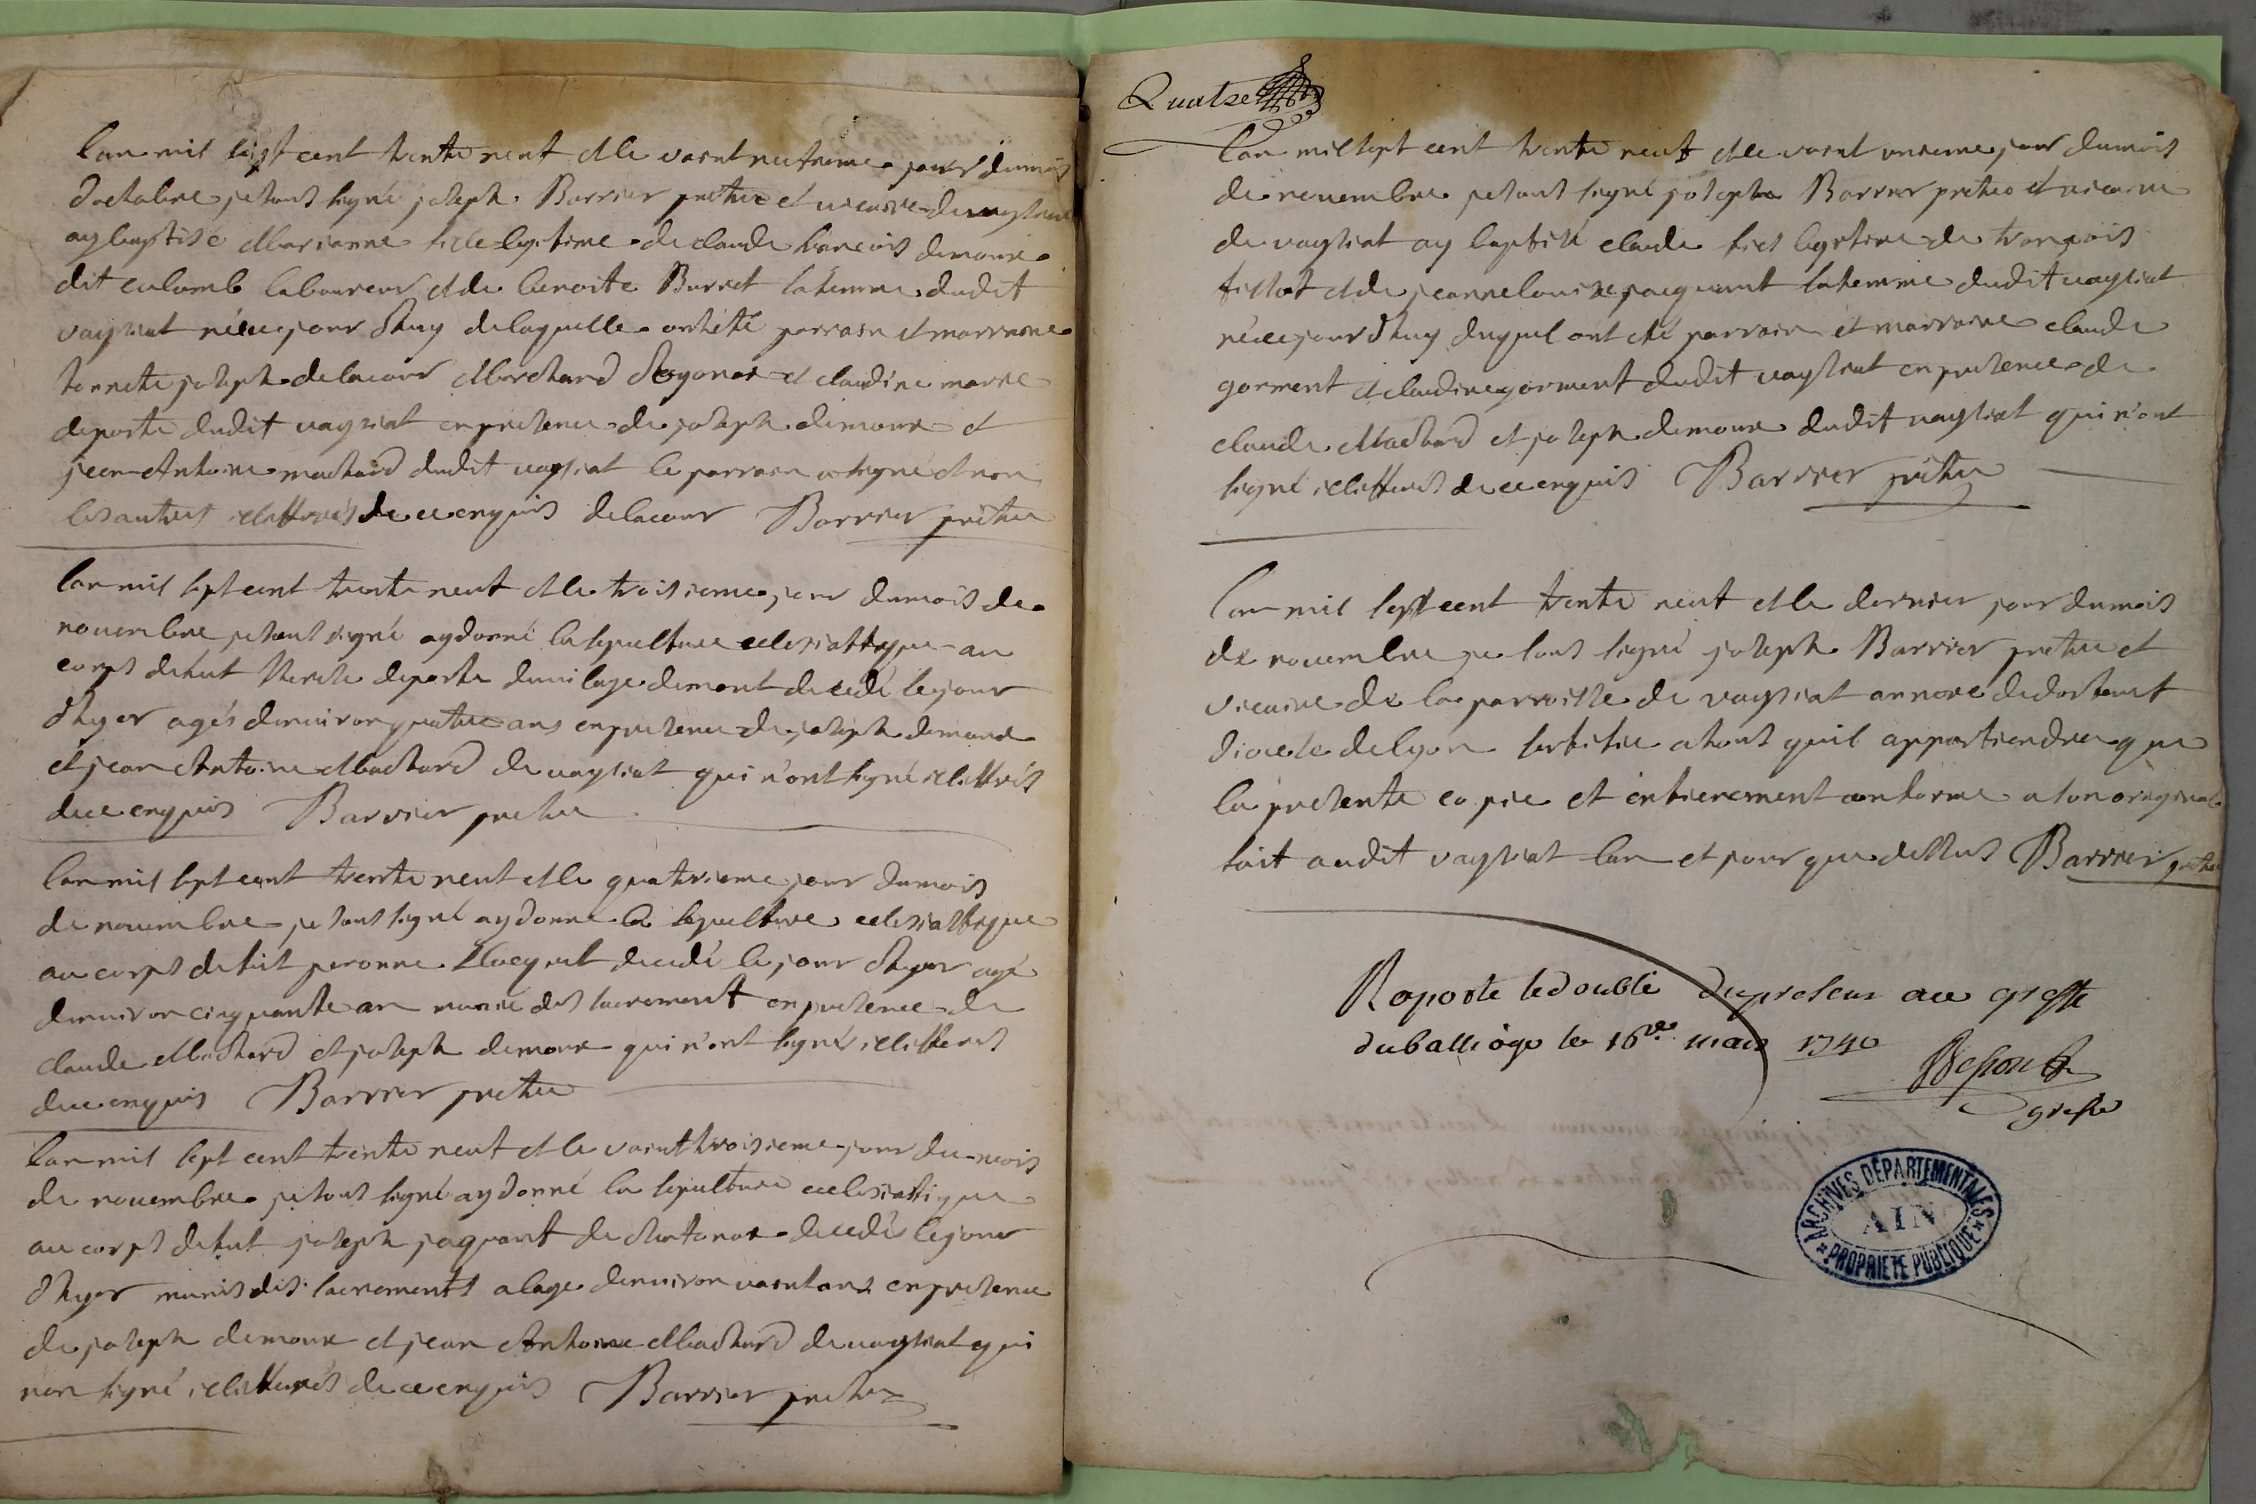 Lan mil sept cent trente neuf et le vaint neufieme jour du mois
doctobre je sous signé joseph Barrier pretre et vicaire de vaysiat
ay baptisé Marianne fille legitime de claude francois demoux
dit colomb laboureur et de benoite Burret sa femme dudit
vaysiat née ce jour dhuy de laquelle ont été parrain et marraine
honnete joseph delacour Marchand doyonax et claudine marie
deporte dudit vaysiat en presence de joseph demoux et
jean Antoine machard dudit vaysiat le parrain a signé et non
les autres illettrés de ce enquis delacour Barrier prêtre
Lan mil sept cent trente neuf et le troisieme jour du mois de
novembre je sous signé ay donné la sepulture eclesiastique au
corps de fut therese deporte du vilage demont decedé le jour
dhyer agés denviron quatre ans en presence de joseph demoux
et jean Antoine Machard de vaysiat qui n'ont signé illettrés
de ce enquis Barrier pretre
Lan mil sept cent trente neuf et le quatrieme jour du mois
de novembre je sous signé ay donné la sepulture eclesiastique
au corps de fut peronne decedé le jour dhyer agé
denviron cinquante an munie des sacrement en presence de
claude Machard et joseph demoux qui n'ont signé illetterés
de ce enquis Barrier pretre
Lan mil sept cent trente neuf et le vaint troisieme jour du mois
de novembre je sous signé ay donné la sepulture eclesiastique
au corps de fut joseph jaquant de decedé le jour
dhyer munis des sacrements a lage denviron vaint ans en presence
de joseph demoux et jean Antoine Machard de vaysiat qui
non signé illetterés de ce enquis Barrier pretre
Quatre
Lan mil sept cent trente neuf et le vaint unieme jour du mois
de novembre je sous signé joseph Barrier pretre et vicaire
de vaysiat ay baptisé claude fils legitime de francois
et de jeanne louise jacquant sa femme dudit vaysiat
né ce jour dhuy duquel ont été parrain et marraine claude
gorment et claudine gorment dudit vaysiat en presence de
claude Machard et joseph demoux dudit vaysiat qui n'ont
signé illetterés de ce enquis Barrier prêtre
Lan mil sept cent trente neuf et le dernier jour du mois
de novembre je sous signé joseph Barrier pretre et
vicaire de la parroisse de vaysiat annexe de dortent
diocese de lyon sertifie a tous quil appartiendra que
la presente copie et entierement conforme a son original
fait audit vaysiat lan et jour que dessus Barrier pretre
Raporté le double du presens au greffe
du balliage le 16e mars 1740
greffier
ARCHIVES DÉPARTEMENTALES
AIN
PROPRIÉTÉ PUBLIQUE